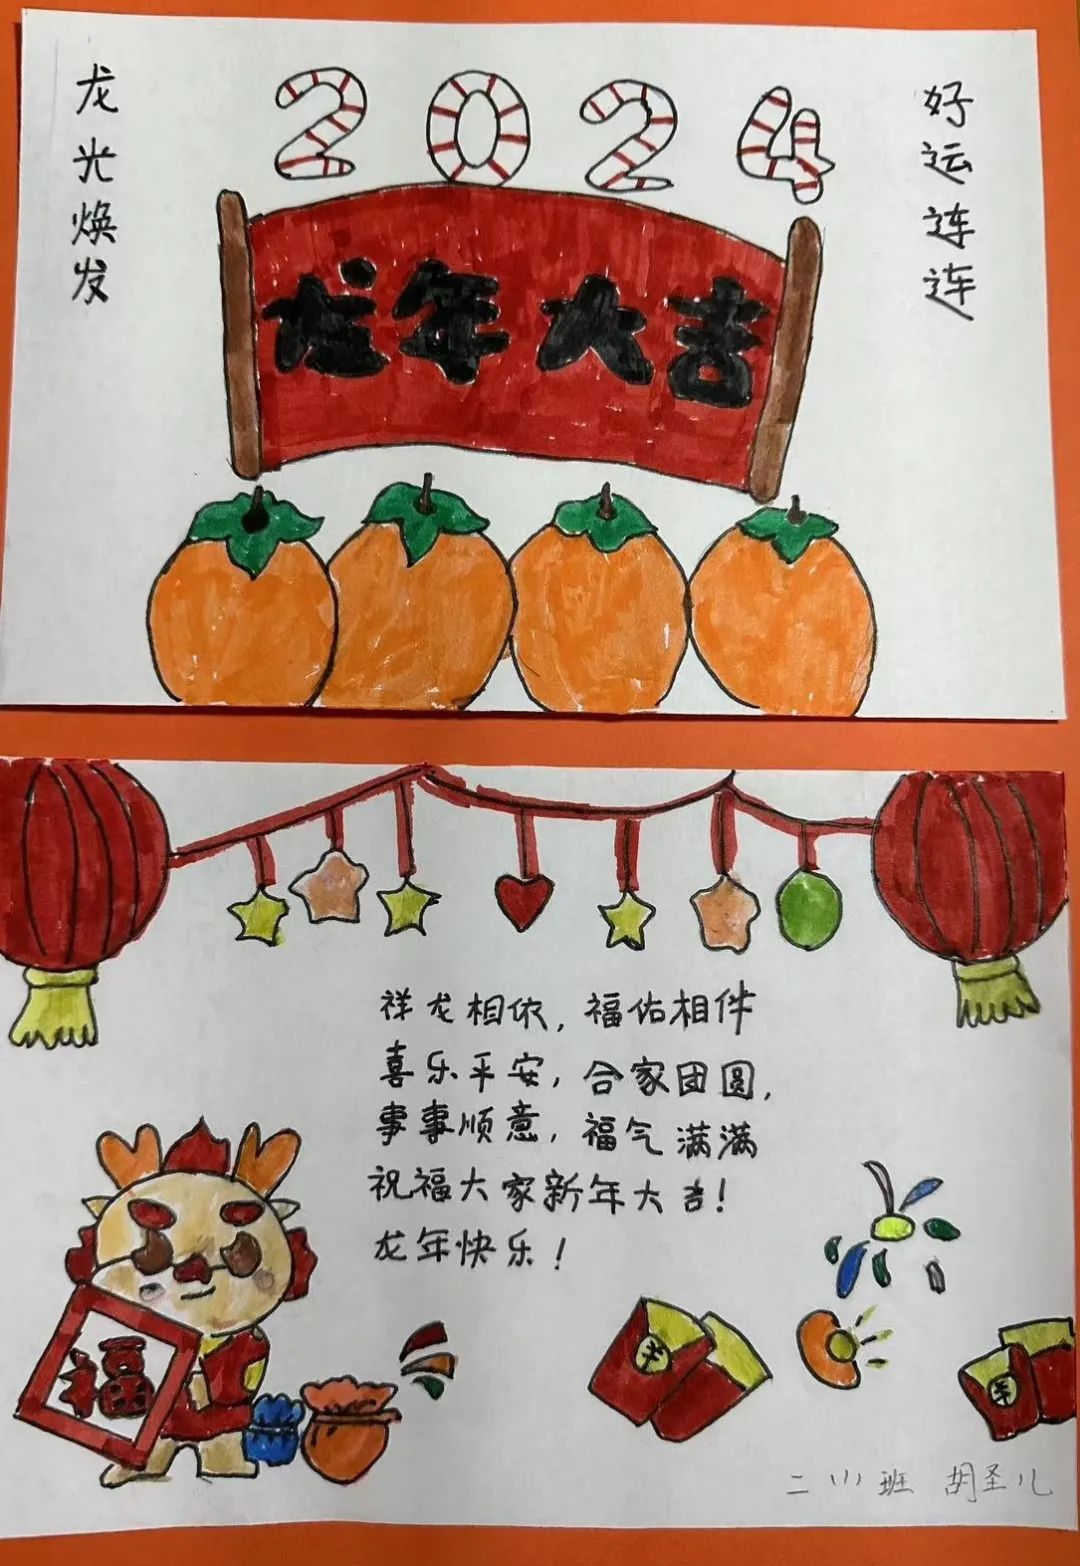 龙光焕发
2024
好运连连
龙年大吉
祥龙相依，福佑相伴
喜乐平安，合家团圆，
事事顺意，福气满满
祝福大家新年大吉！
龙年快乐！
福
二（1）班 胡圣儿